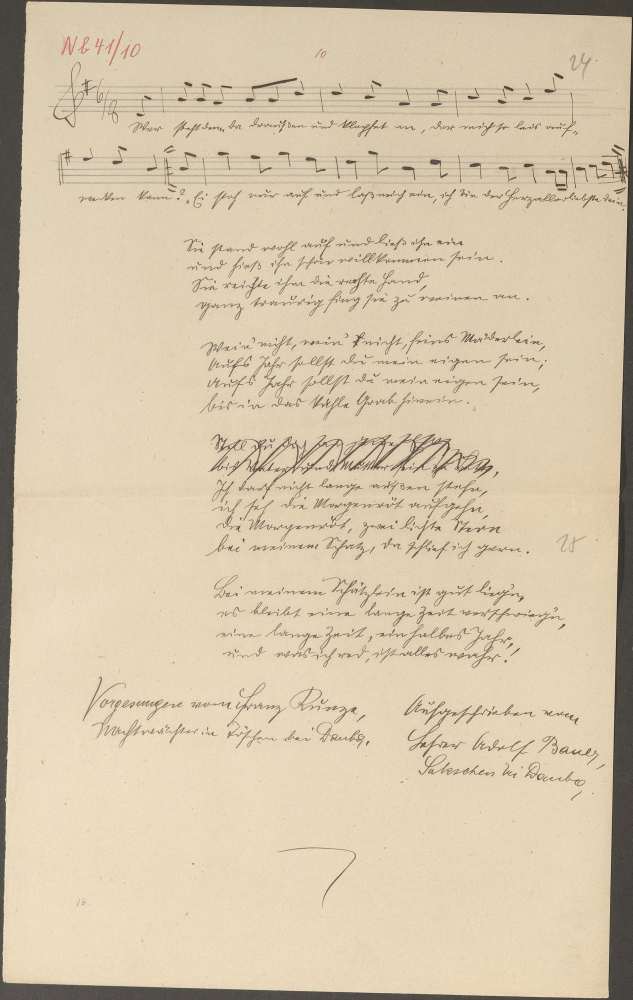 Nb 41/10
10
24.
6/8
Wer steht denn da draußen und klopfet an, der mich so leis auf-
wecken kann? Ei steh nur auf und laß mich ein, ich bin der Herzallerliebste dein.
Sie stand wohl auf und ließ ihn ein
und hieß ihn schön willkommen sein.
Sie reichte ihm die rechte Hand,
ganz traurig fing sie zu weinen an.
Wein' nicht, wein' nicht, feins Mäderlein,
Aufs Jahr sollst du mein eigen sein;
Aufs Jahr sollst du mein eigen sein,
bis in das kühle Grab hinein.
Ich darf nicht lange außen stehn,
ich seh die Morgenröt aufgehn,
die Morgenröt, zwei lichte Stern
bei meinem Schatz, da schlief ich gern.
25
Bei meinem Schätzlein ist gut lieg'n,
es bleibt eine lange Zeit verschwieg'n,
eine lange Zeit, ein halbes Jahr,
und was ich red, ist alles wahr!
Vorgesungen vom Franz Kunze,
Nachtwächter in bei Dauba.
Aufgeschrieben vom
Lehrer Adolf Bauer,
bei Dauba,